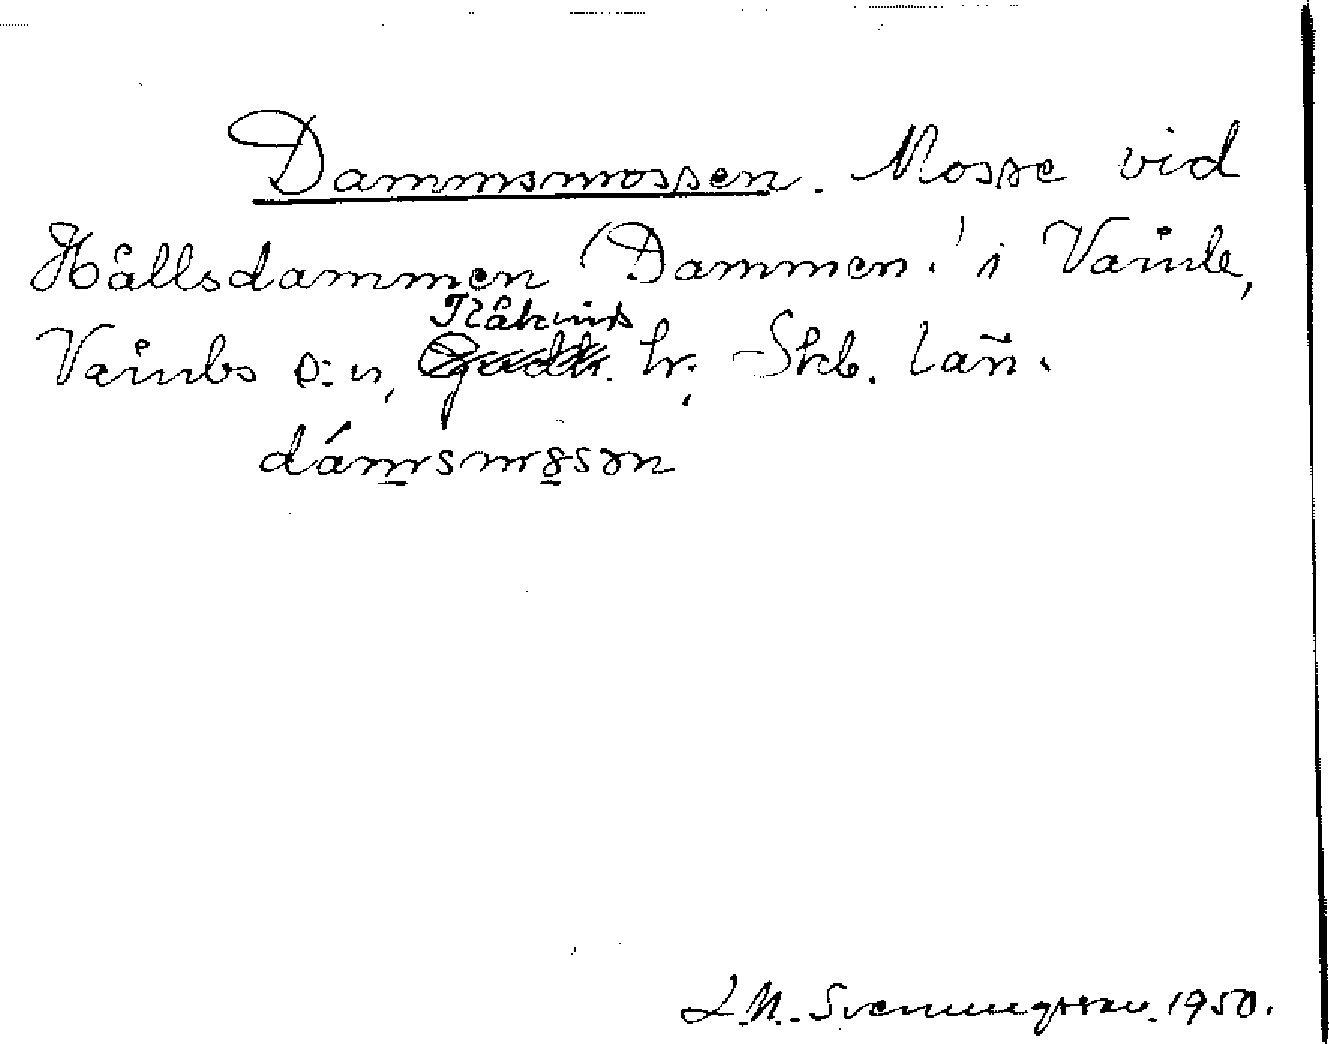 Dammsmossen. Mosse vid
Hållsdammen (Dammen) i Våmb,
Våmbs s:n, Kåkinds hr. Skb. län.
dámsmssən
L. M. Svenungsson. 1950.